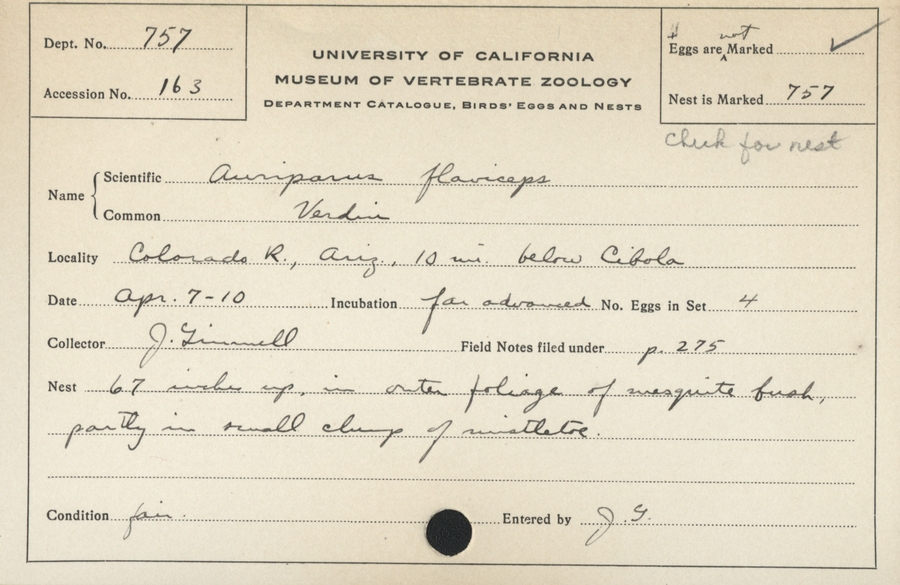 Dept. No. 757
Accession No. 163
UNIVERSITY OF CALIFORNIA
MUSEUM OF VERTEBRATE ZOOLOGY
DEPARTMENT CATALOGUE, BIRDS' EGGS AND NESTS
4 Eggs are not Marked ✓
Nest is Marked 757
Check for nest
Name
Scientific Auriparus flaviceps
Common Verdin
Locality Colorado R., Ariz., 10 mi. below Cibola
Date Apr. 7-10 Incubation far advanced No. Eggs in Set 4
Collector J. Grinnell Field Notes filed under p. 275
Nest 67 inches up, in outer foliage of mesquite bush,
partly in small clump of mistletoe.
Condition fair. Entered by J. G.